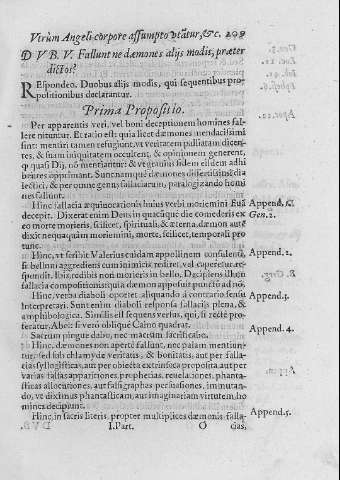 Vtrùm Angeli corpore assumpto vtãtur, &c. 209
D V B. V. Fallunt ne dæmones alijs modis, præter
dictos?
REspondeo. Duobus alijs modis, qui sequentibus pro-
positionibus declarantur.
Prima Propositio.
Per apparentis veri, vel boni deceptionem homines fal-
lere nituntur. Et ratio est: quia licet dæmones mendacissimi
sint: mentiri tamen refugiunt, vt veritatem palliare dicen-
tes, & suam iniquitatem occultent, & opinionem generent,
quasi Dij, nõ mentiantur: & vt grauius fidem eisdem adhi
bentes opprimant. Sunt namquè dæmones dissertissimi dia
lectici, & per omne genus fallaciarum, paralogizando homi
nes fallunt.
Hinc fallacia æquiuocationis huius verbi moriemini Euã
decepit. Dixerat enim Deus in quacũquè die comederis ex
eo morte morieris, scilicet, spirituali, & æterna, dæmon autẽ
dixit nequaquàm moriemini, morte, scilicet, temporali pro
tunc.
Hinc, vt scribit Valerius cuidam appollinem consulenti,
si bellum aggrediens cum inimicis rediret, vel superatus, re-
spondit. Ibis redibis non morieris in bello. Decipiens illum
fallacia compositionis: quia dæmon apposuit punctũ ad nõ.
Hinc, verba diaboli oportet aliquando à contrario sensu
interpretari. Sunt enim diaboli responsa fallacia, dolis plena, &
amphibologica. Similis est sequens versus, qui, si rectè pro-
feratur, Abel: si verò obliquè Caino quadrat.
Sacrum pingue dabo, nec macrum sacrificabo.
Hinc, dæmones non apertè fallunt, nec palam mentiun-
tur, sed sub chlamyde veritatis, & bonitatis, aut per falla-
cias syllogisticas, aut per obiecta extrinseca proposita, aut per
varias falsas apparitiones, prophetias, reuelationes, phanta-
sticas allocutiones, aut falsigraphas persuasiones, immutan-
do, ve diximus phantasticam, aut imaginariam virtutem, ho
minea decipiunt.
Hinc, in sacris literis, propter multiplices dæmonis falla-
I. Part. O cias,
Append. 1.
Gen. 2.
Append. 2.
Append. 3.
Append. 4.
Append. 5.